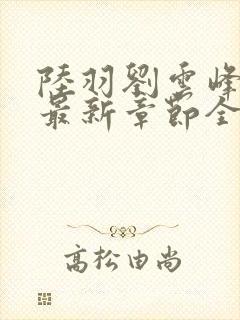 陸羽劉雲峰
最新章節全
高松由尚